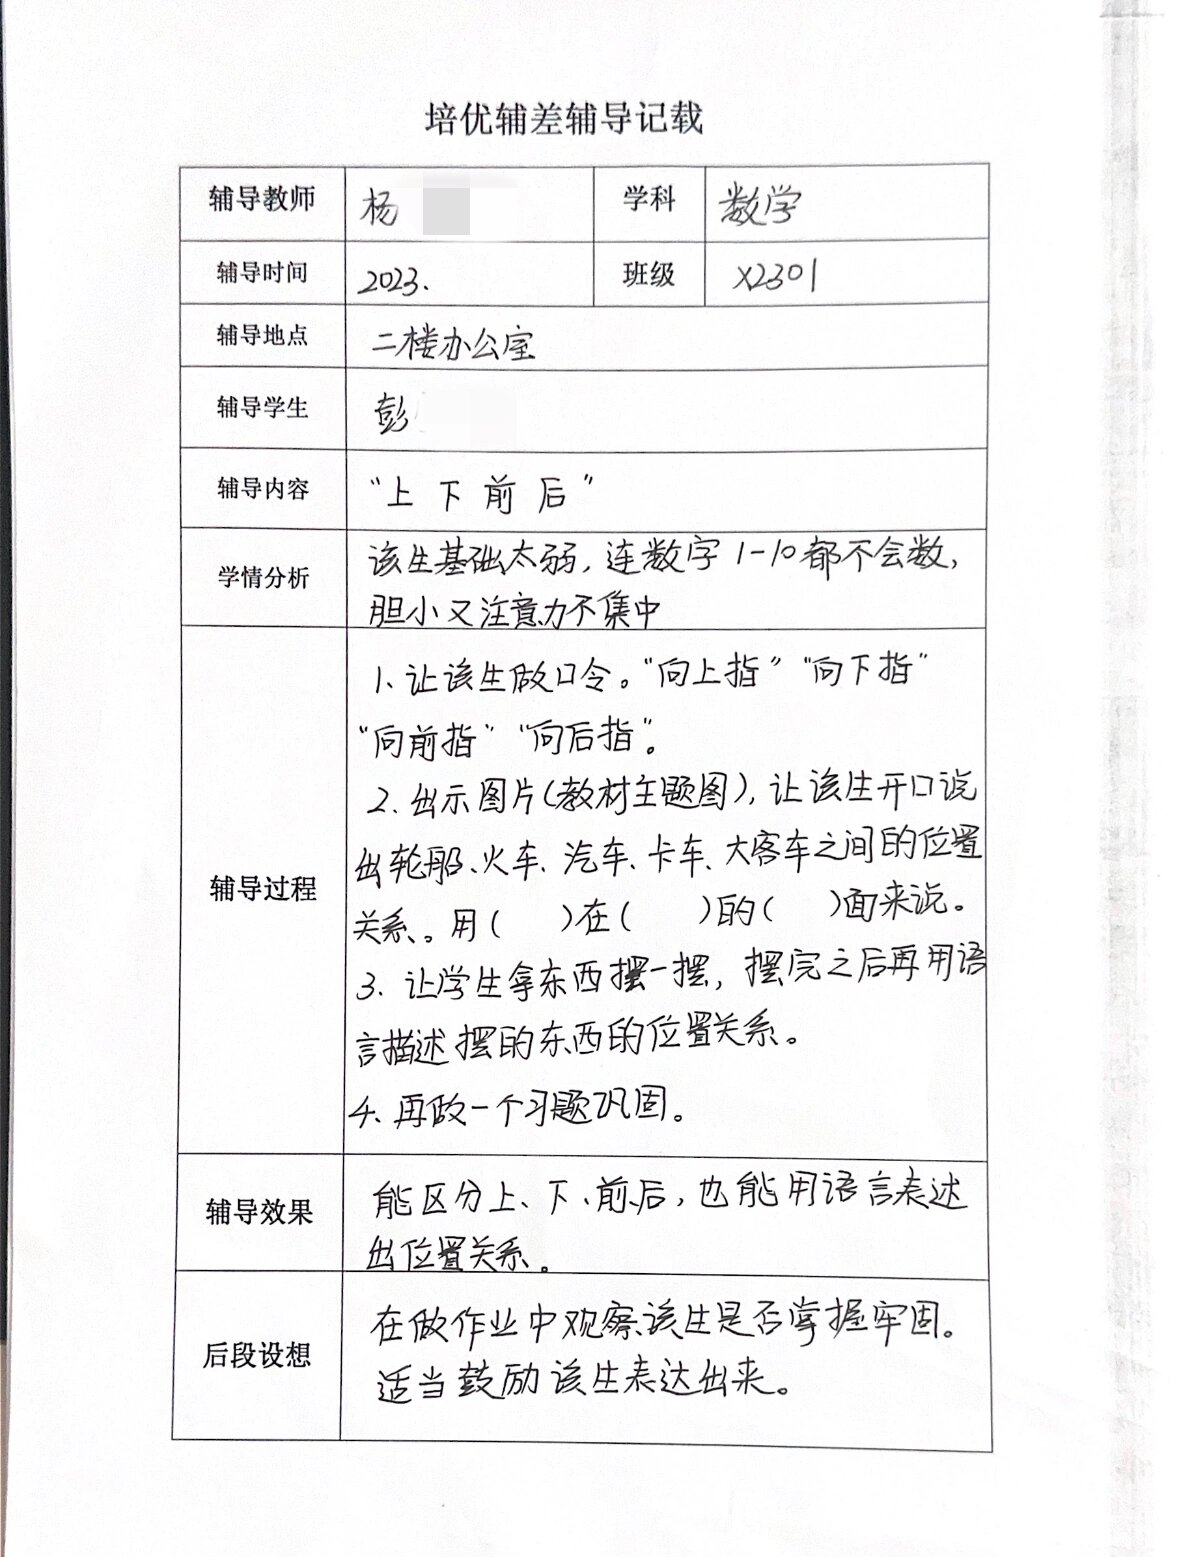 培优辅差辅导记载
辅导教师 杨 学科 数学
辅导时间 2023. 班级 X2301
辅导地点 二楼办公室
辅导学生 彭
辅导内容 “上 下 前 后”
学情分析 该生基础太弱，连数字1-10都不会数，
胆小又注意力不集中
辅导过程
1、让该生做口令。“向上指”“向下指”
“向前指”“向后指”。
2、出示图片（教材主题图），让该生开口说
出轮船、火车、汽车、卡车、大客车之间的位置
关系。用（ ）在（ ）的（ ）面来说。
3、让学生拿东西摆一摆，摆完之后再用语
言描述摆的东西的位置关系。
4、再做一个习题巩固。
辅导效果 能区分上、下、前、后，也能用语言表达
出位置关系。
后段设想 在做作业中观察该生是否掌握牢固。
适当鼓励该生表达出来。